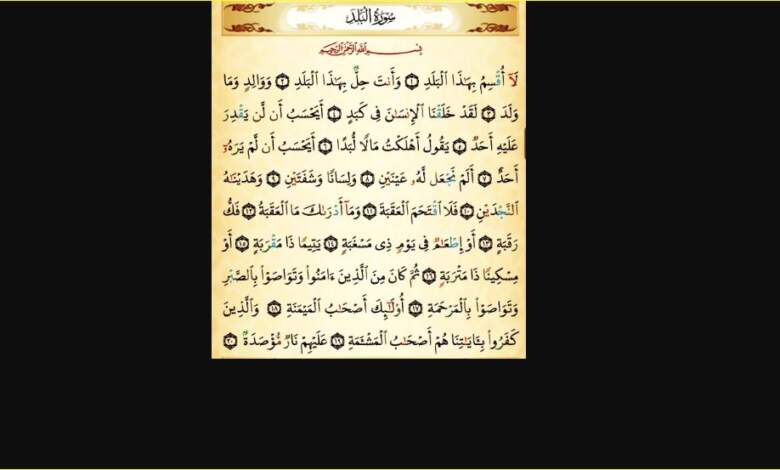 سُورَةُ الْبَلَدِ
بِسْمِ اللَّهِ الرَّحْمَٰنِ الرَّحِيمِ
لَآ أُقْسِمُ بِهَٰذَا الْبَلَدِ ١ وَأَنتَ حِلٌّ بِهَٰذَا الْبَلَدِ ٢ وَوَالِدٍ وَمَا
وَلَدَ ٣ لَقَدْ خَلَقْنَا الْإِنسَٰنَ فِى كَبَدٍ ٤ أَيَحْسَبُ أَن لَّن يَقْدِرَ
عَلَيْهِ أَحَدٌ ٥ يَقُولُ أَهْلَكْتُ مَالًا لُّبَدًا ٦ أَيَحْسَبُ أَن لَّمْ يَرَهُۥٓ
أَحَدٌ ٧ أَلَمْ نَجْعَل لَّهُۥ عَيْنَيْنِ ٨ وَلِسَانًا وَشَفَتَيْنِ ٩ وَهَدَيْنَٰهُ
النَّجْدَيْنِ ١٠ فَلَا اقْتَحَمَ الْعَقَبَةَ ١١ وَمَآ أَدْرَىٰكَ مَا الْعَقَبَةُ ١٢ فَكُّ
رَقَبَةٍ ١٣ أَوْ إِطْعَٰمٌ فِى يَوْمٍ ذِى مَسْغَبَةٍ ١٤ يَتِيمًا ذَا مَقْرَبَةٍ ١٥ أَوْ
مِسْكِينًا ذَا مَتْرَبَةٍ ١٦ ثُمَّ كَانَ مِنَ الَّذِينَ ءَامَنُوا۟ وَتَوَاصَوْا۟ بِالصَّبْرِ
وَتَوَاصَوْا۟ بِالْمَرْحَمَةِ ١٧ أُو۟لَٰٓئِكَ أَصْحَٰبُ الْمَيْمَنَةِ ١٨ وَالَّذِينَ
كَفَرُوا۟ بِـَٔايَٰتِنَا هُمْ أَصْحَٰبُ الْمَشْـَٔمَةِ ١٩ عَلَيْهِمْ نَارٌ مُّؤْصَدَةٌ ٢٠